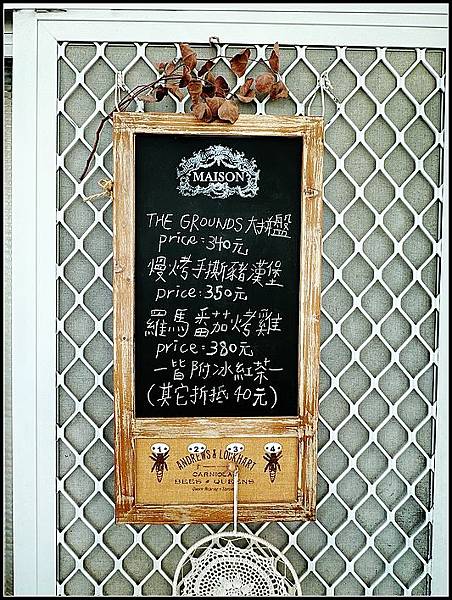 MAISON
THE GROUNDS 大拼盤
price:340元
慢烤手撕豬漢堡
price:350元
羅馬番茄烤雞
price:380元
一皆附冰紅茶一
(其它折抵40元)
1 2 3 4
ANDREWS & LOCKHART
CARNIOLAN
BEES & QUEENS